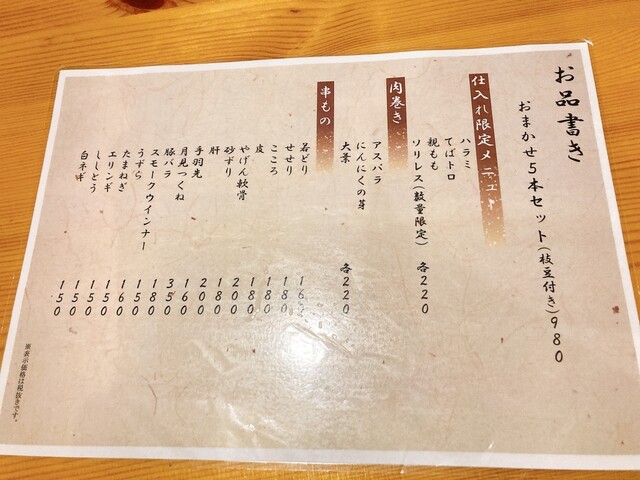 お品書き
おまかせ5本セット(枝豆付き)980
仕入れ限定メニュー
ハラミ
てばトロ
親もも
ソリレス(数量限定) 各220
肉巻き
アスパラ
にんにくの芽
大葉 各220
串もの
若どり
せせり 180
こころ 180
皮 180
やげん軟骨 200
砂ずり 180
肝 200
手羽先 160
月見つくね 350
豚バラ 180
スモークウインナー 150
うずら 160
たまねぎ 150
エリンギ 150
ししとう 150
白ネギ 150
※表示価格は税抜きです。